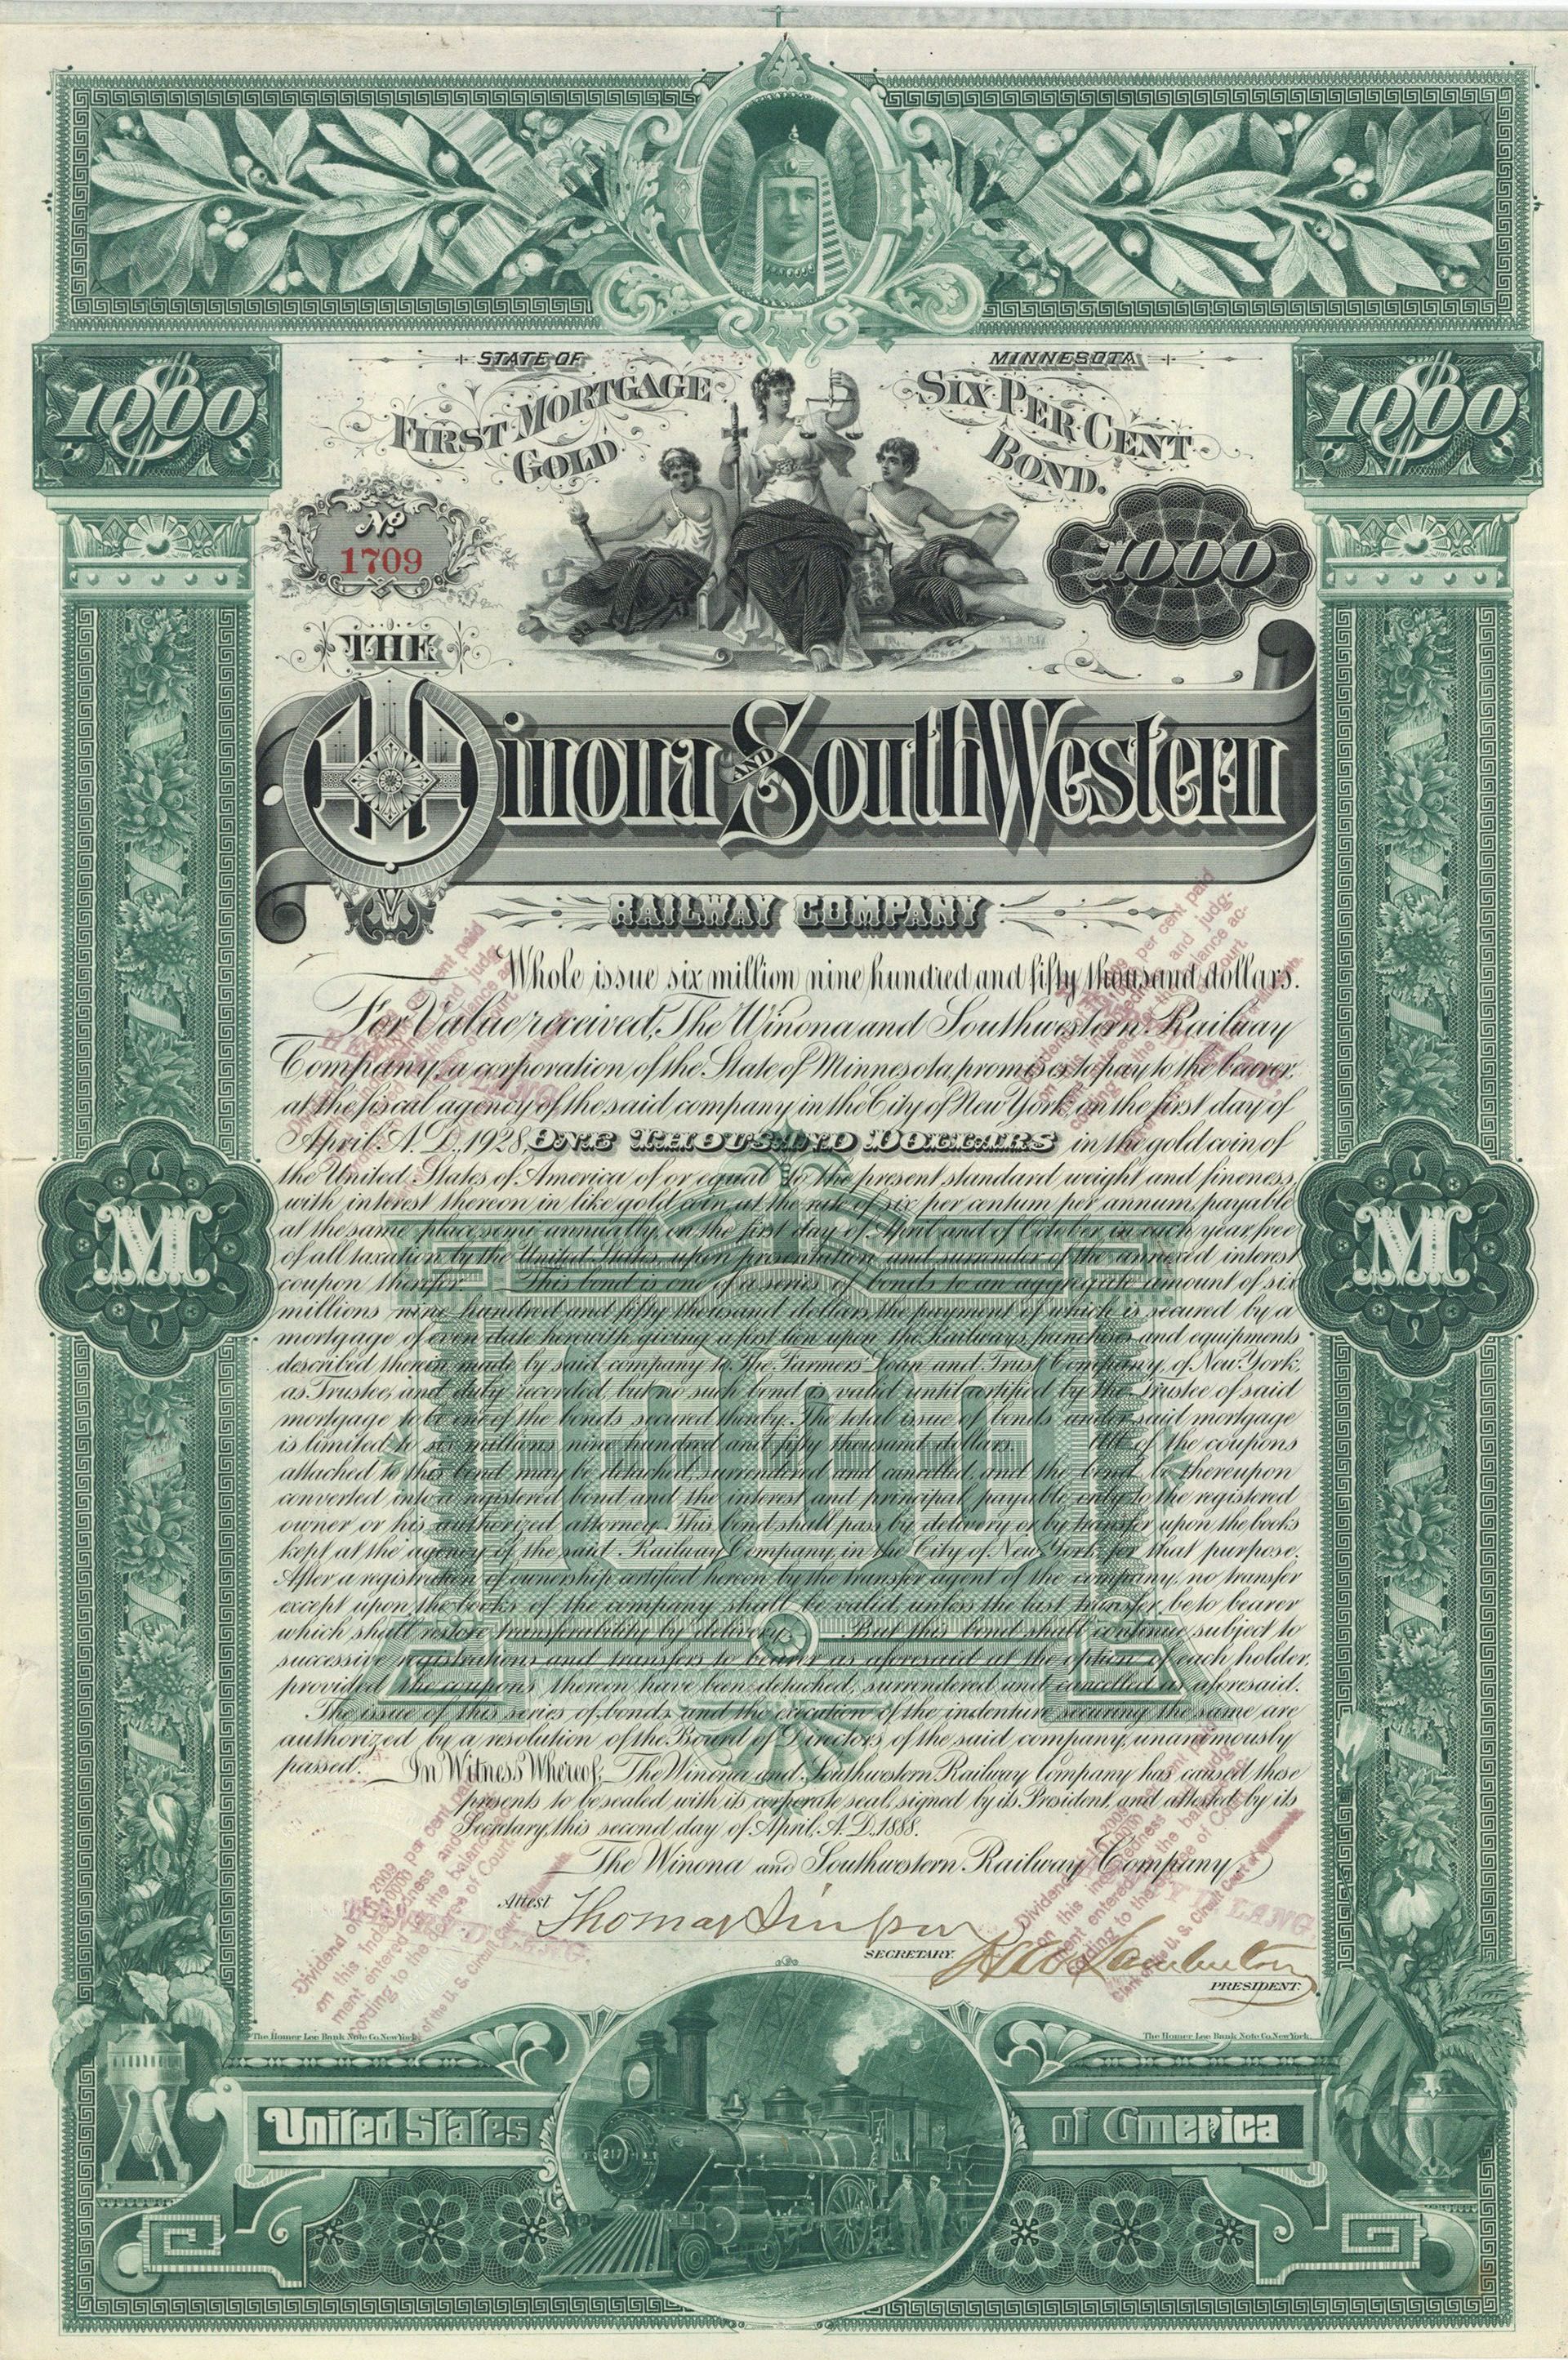 STATE OF MINNESOTA
$1000 $1000
FIRST MORTGAGE SIX PER CENT
GOLD BOND.
No
1709
1000
THE
Winona AND South Western
RAILWAY COMPANY
Whole issue six million nine hundred and fifty thousand dollars.
For Value received, The Winona and Southwestern Railway
Company, a corporation of the State of Minnesota, promises to pay to the bearer,
at the fiscal agency of the said company in the City of New York, on the first day of
April A. D., 1928, ONE THOUSAND DOLLARS in the gold coin of
the United States of America of or equal to the present standard weight and fineness,
with interest thereon in like gold coin, at the rate of six per centum per annum, payable
at the same place, semi annually, on the first day of April and of October in each year, free
of all taxation by the United States, upon presentation and surrender of the annexed interest
coupon therefor. This bond is one of a series of bonds to an aggregate amount of six
millions nine hundred and fifty thousand dollars, the payment of which is secured by a
mortgage of even date herewith giving a first lien upon the Railways, franchises and equipments
described therein, made by said company to The Farmers' Loan and Trust Company, of New York,
as Trustee, and duly recorded, but no such bond is valid until certified by the Trustee of said
mortgage to be one of the bonds secured thereby. The total issue of bonds under said mortgage
is limited to six millions nine hundred and fifty thousand dollars. All of the coupons
attached to this bond may be detached, surrendered and cancelled, and the bond be thereupon
converted into a registered bond and the interest and principal payable only to the registered
owner or his authorized attorney. This bond shall pass by delivery or by transfer upon the books
kept at the agency of the said Railway Company, in the City of New York, for that purpose.
After a registration of ownership certified hereon by the transfer agent of the company, no transfer
except upon the books of the company shall be valid, unless the last transfer be to bearer
which shall restore transferability by delivery. But this bond shall continue subject to
successive registrations and transfers to bearer as aforesaid at the option of each holder,
provided the coupons thereon have been detached, surrendered and cancelled as aforesaid.
The issue of this series of bonds and the execution of the indenture securing the same are
authorized by a resolution of the Board of Directors of the said company, unanimously
passed. In Witness Whereof, The Winona and Southwestern Railway Company has caused these
presents to be sealed with its corporate seal, signed by its President, and attested by its
Secretary, this second day of April, A. D. 1888.
The Winona and Southwestern Railway Company,
M M
1000
Attest Thomas Simpson
SECRETARY.
H W Lamberton
PRESIDENT.
Dividend of
on this indebtedness and judg-
ment entered for the balance ac-
cording to the decree of Court.
HENRY D. LANG,
Clerk of the U. S. Circuit Court
The Homer Lee Bank Note Co. New York. The Homer Lee Bank Note Co. New York.
United States of America
217